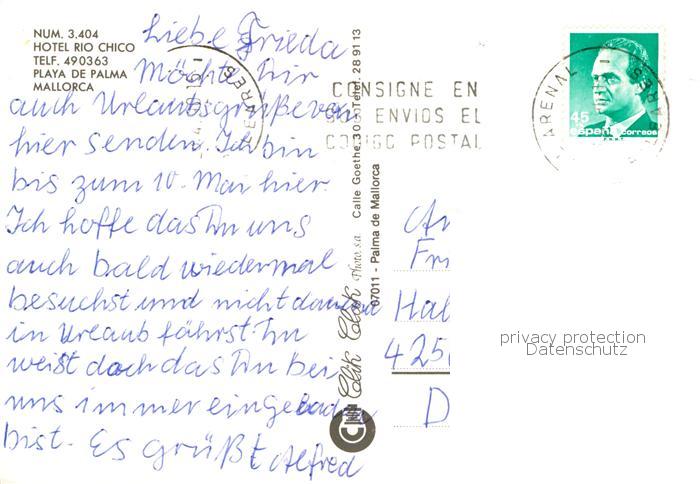 NUM. 3.404
HOTEL RIO CHICO
TELF. 490363
PLAYA DE PALMA
MALLORCA
Liebe Frieda
Möchte Dir
auch Urlaubsgrüße von
hier senden. Ich bin
bis zum 10. Mai hier.
Ich hoffe das Du uns
auch bald wiedermal
besuchst und nicht dauernd
in Urlaub fährst. Du
weißt doch das Du bei
uns immer eingeladen
bist. Es grüßt Alfred
CONSIGNE EN
ENVIOS EL
CODIGO POSTAL
ARENAL
BALEARES
45
españa correos
Clik Clak Photo s.a. Calle Goethe, 30 Telf. 28 91 13
07011 - Palma de Mallorca
An
Fri
Hal
425
D
privacy protection
Datenschutz